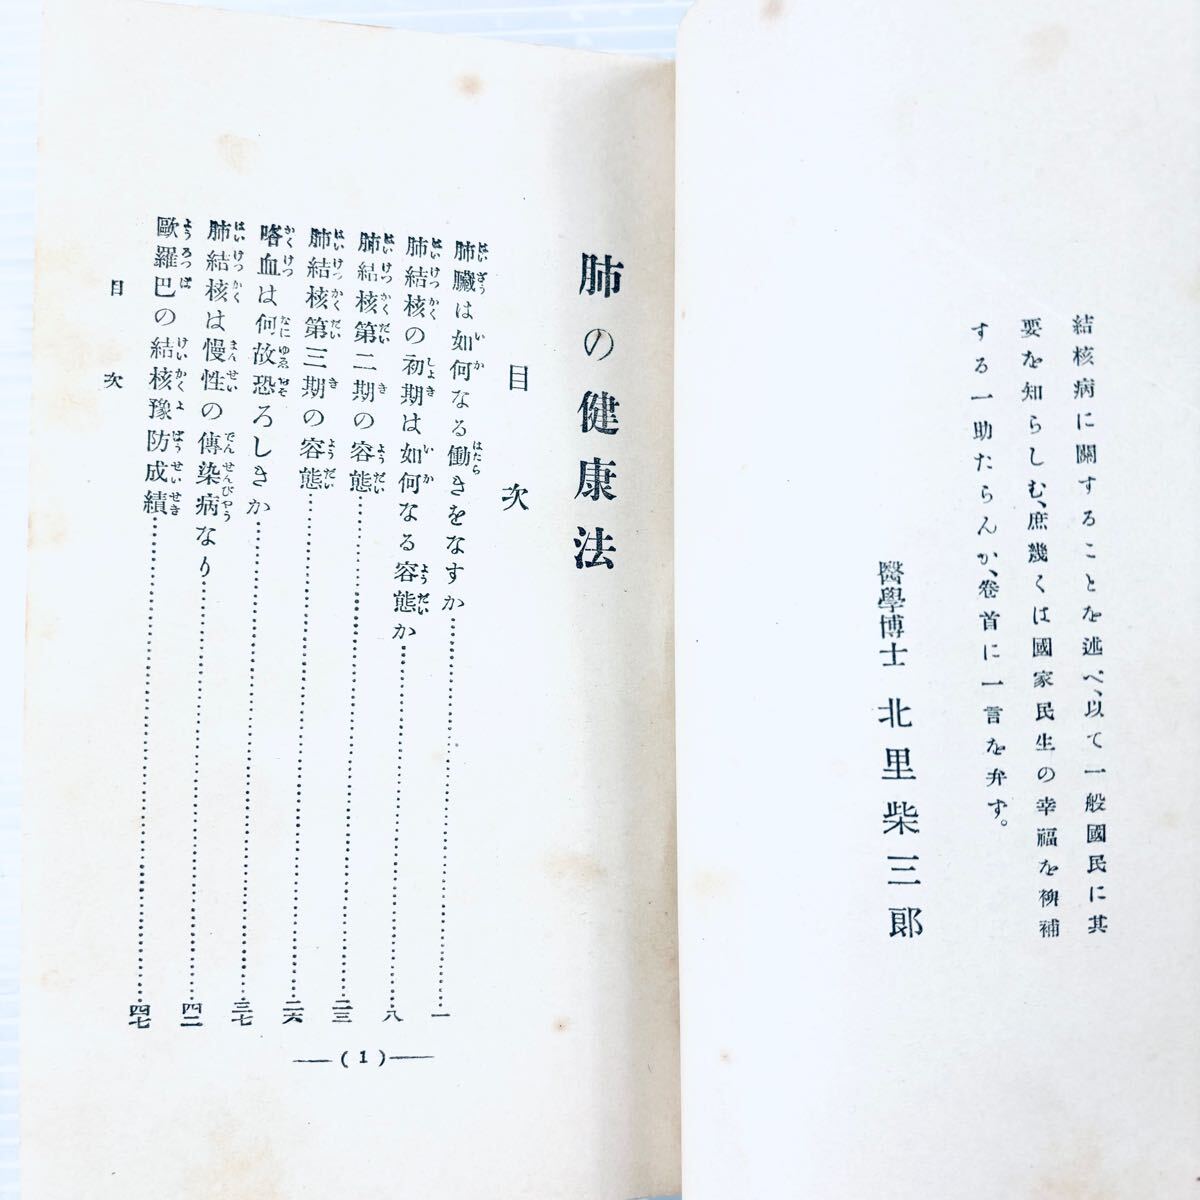 結核病に關することを述べ、以て一般國民に其
要を知らしむ、庶幾くは國家民生の幸福を裨補
する一助たらんか、卷首に一言を弁ず。
醫學博士 北里柴三郞
肺の健康法
目次
肺臟は如何なる働きをなすか……一
肺結核の初期は如何なる容態か……八
肺結核第二期の容態……二三
肺結核第三期の容態……二六
喀血は何故恐ろしきか……三七
肺結核は慢性の傳染病なり……四二
歐羅巴の結核豫防成績……四七
目次
(1)